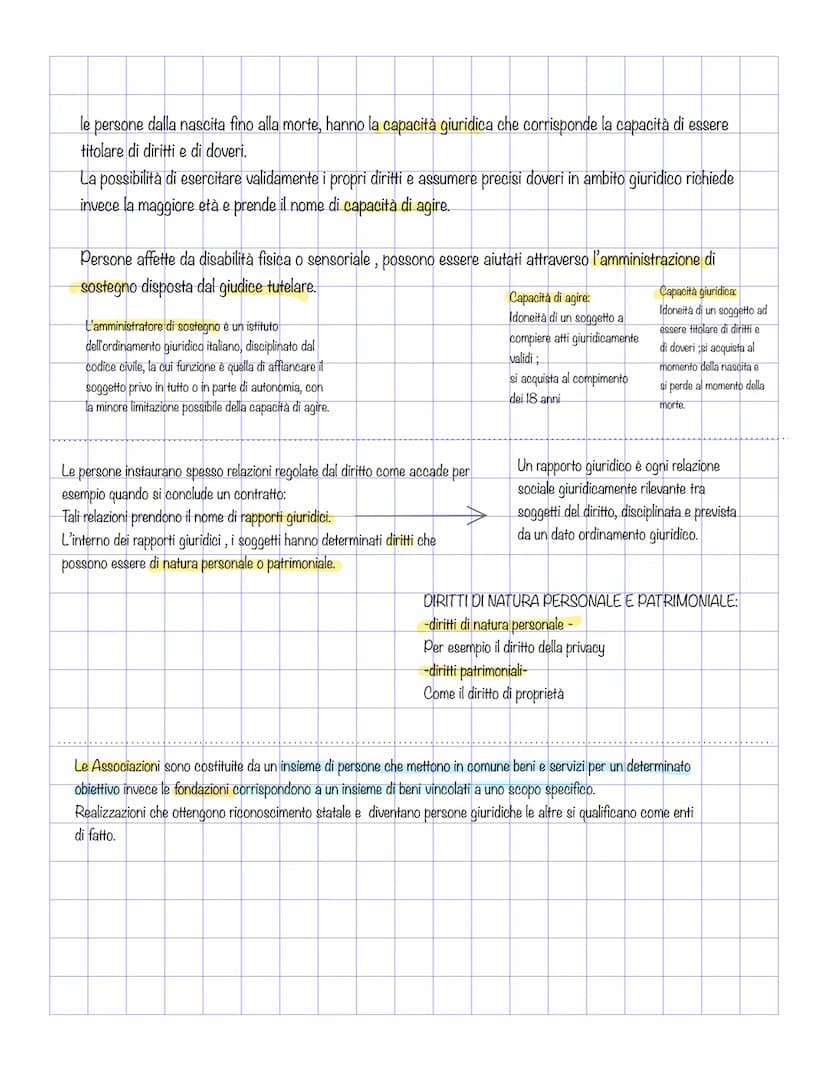 le persone dalla nascita fino alla morte, hanno la capacità giuridica che corrisponde la capacità di essere
titolare di diritti e di doveri.
La possibilità di esercitare validamente i propri diritti e assumere precisi doveri in ambito giuridico richiede
invece la maggiore età e prende il nome di capacità di agire.
Persone affette da disabilità fisica o sensoriale , possono essere aiutati attraverso l'amministrazione di
sostegno disposta dal giudice tutelare.
L'amministratore di sostegno è un istituto
dell'ordinamento giuridico italiano, disciplinato dal
codice civile, la cui funzione è quella di affiancare il
soggetto privo in tutto o in parte di autonomia, con
la minore limitazione possibile della capacità di agire.
Capacità di agire:
Idoneità di un soggetto a
compiere atti giuridicamente
validi ;
si acquista al compimento
dei 18 anni
Capacità giuridica:
Idoneità di un soggetto ad
essere titolare di diritti e
di doveri ;si acquista al
momento della nascita e
si perde al momento della
morte.
Le persone instaurano spesso relazioni regolate dal diritto come accade per
esempio quando si conclude un contratto:
Tali relazioni prendono il nome di rapporti giuridici.
L'interno dei rapporti giuridici , i soggetti hanno determinati diritti che
possono essere di natura personale o patrimoniale.
Un rapporto giuridico è ogni relazione
sociale giuridicamente rilevante tra
soggetti del diritto, disciplinata e prevista
da un dato ordinamento giuridico.
DIRITTI DI NATURA PERSONALE E PATRIMONIALE:
-diritti di natura personale -
Per esempio il diritto della privacy
-diritti patrimoniali-
Come il diritto di proprietà
Le Associazioni sono costituite da un insieme di persone che mettono in comune beni e servizi per un determinato
obiettivo invece le fondazioni corrispondono a un insieme di beni vincolati a uno scopo specifico.
Realizzazioni che ottengono riconoscimento statale e diventano persone giuridiche le altre si qualificano come enti
di fatto.